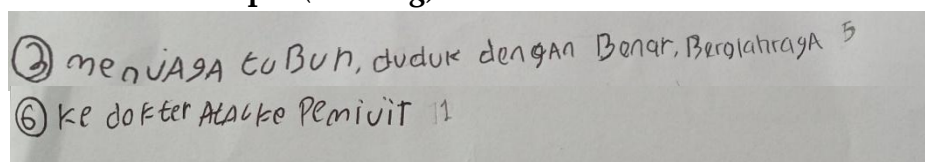 ③ menJAgA tuBuh, duduk dengAn Benar, BerglahragA 5
⑥ ke dokter AtAu ke Pemivit 11